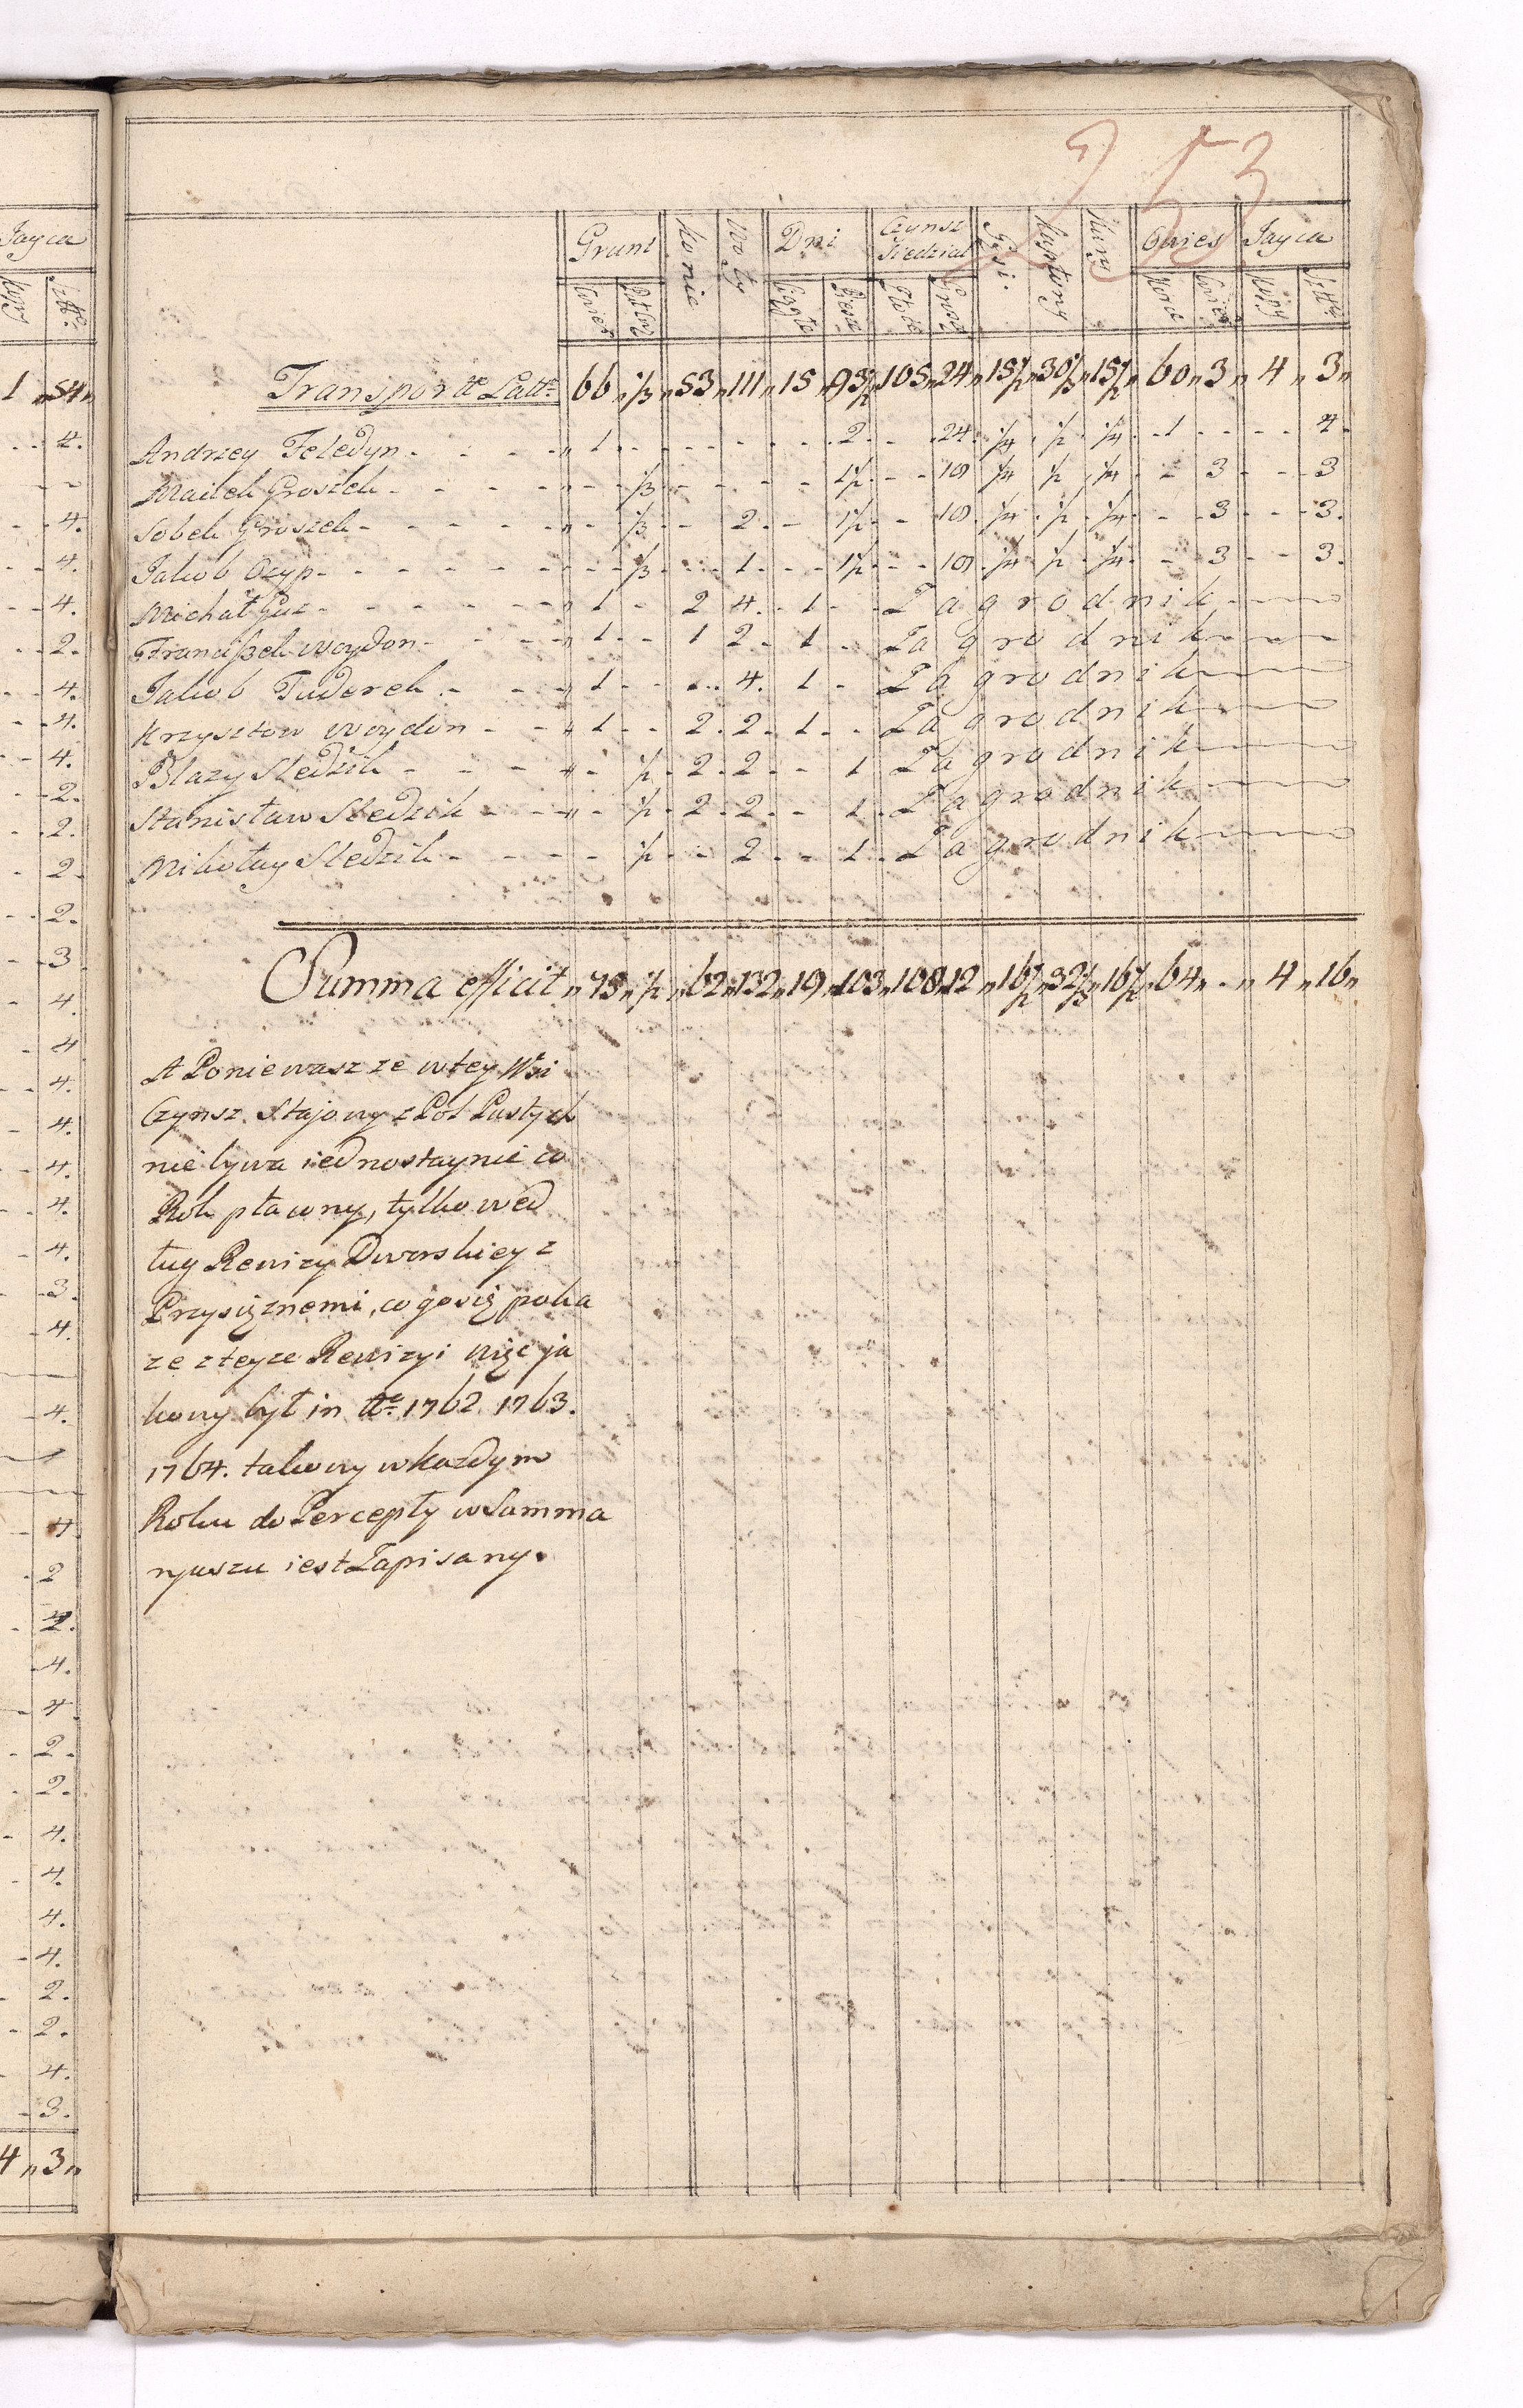 253
Jayca
Kopy Sztt.
1 „ 54 „
4.
4.
4.
4.
2.
4.
4.
4.
2.
2.
2
2.
3
4.
4
4.
4.
4.
4.
4.
3.
4.
4.
4
2
2.
4.
4
2.
2.
4.
4.
4.
4.
2.
2.
4.
3.
4 „ 3 „
Grunt Konie Woły Dni Czynsz Siedział Gęsi. Kapłony Kury Owies Jayca
Ciągłe Piesze Złote Grosz Korce Kopy Sztt.
Transport Latt. 66 „ ½ „ 53 „ 111 „ 15 „ 93½ „ 105 „ 24 „ 15½ „ „ 15½ „ 60 „ 3 „ 4 „ 3 „
Andrzey Feledyn - 1 - 2 - 24. ¼ ½ ¼ 1 - 4.
Maciek Groszek - ½ - 1½ - 18 ¼ ½ ¼ - 3 - 3
Sobek Groszek - ½ - 2 - 1½ - 18 ¼ ½ ¼ - 3 - 3.
Jakob Czyp - ½ - 1 - 1½ - 18 ¼ ½ ¼ - 3 - 3.
Michał Guz - 1 - 2 4. - 1 - Zagrodnik
Franciszek Woydon - 1 - 1 2 - 1 - Zagrodnik
Jakob Tuderek - 1 - 4. 1 - Zagrodnik
Krzysztow Woydon - 1 - 2. 2. 1 - Zagrodnik
Błazy Sledzik - ½ 2. 2 - 1 Zagrodnik
Stanisław Sledzik - ½ 2. 2. - 1. Zagrodnik
Mikołay Sledzik - ½ - 2 - 1. Zagrodnik
Summa efficit „ 73 „ ½ „ 62 „ 132 „ 19 „ 103 „ 108 „ 12 „ 16½ „ „ 16½ „ 64 „ - „ 4 „ 16 „
A Poniewasz ze w tey Wsi
Czynsz Stajowy z Pol Pustych
nie bywa iednostaynie co
Rok płacony, tylko wed
ług Rewizy Dworskiey z
Przysięznemi, co go się poka
ze z teyze Rewizyi więc ja
kowy był in Ao 1762 1763.
1764. takowy w kazdym
Roku do Percepty w Summa
ryuszu iest Zapisany.